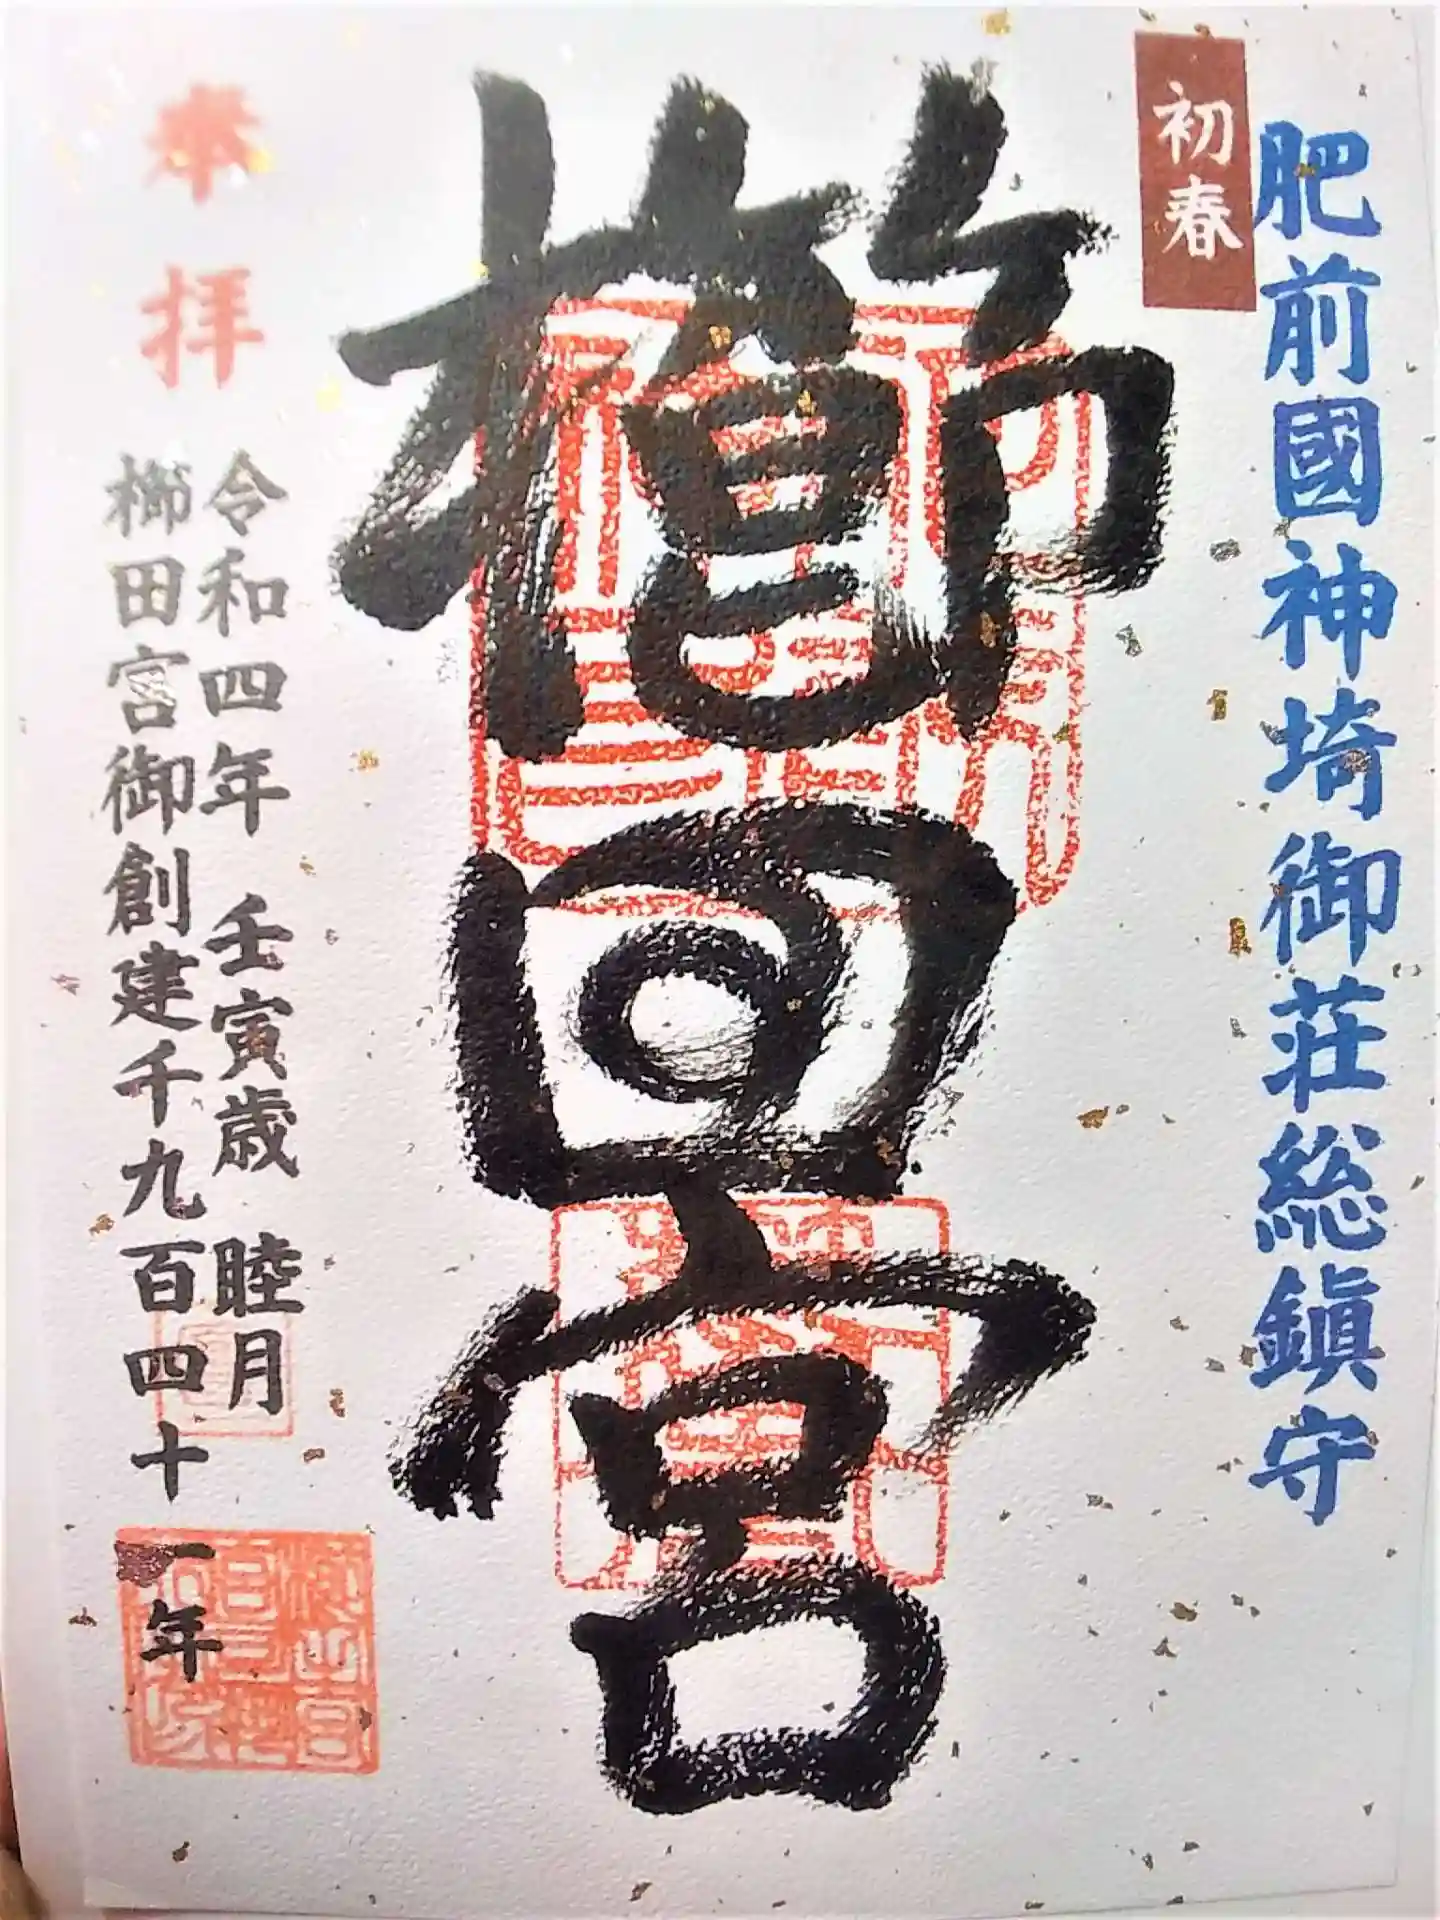 肥前國神埼御荘総鎭守
初春
櫛田宮
奉拝
令和四年 壬寅歳 睦月
櫛田宮御創建千九百四十一年